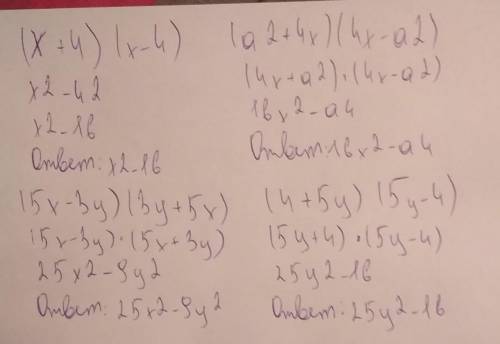 (x+4) (x-4)
x2-42
x2-16
Ответ: x2-16
(a2+4x)(4x-a2)
(4x+a2)·(4x-a2)
16x2-a4
Ответ: 16x2-a4
(5x-3y)(3y+5x)
(5x-3y)·(5x+3y)
25x2-9y2
Ответ: 25x2-9y2
(4+5y) (5y-4)
(5y+4)·(5y-4)
25y2-16
Ответ: 25y2-16